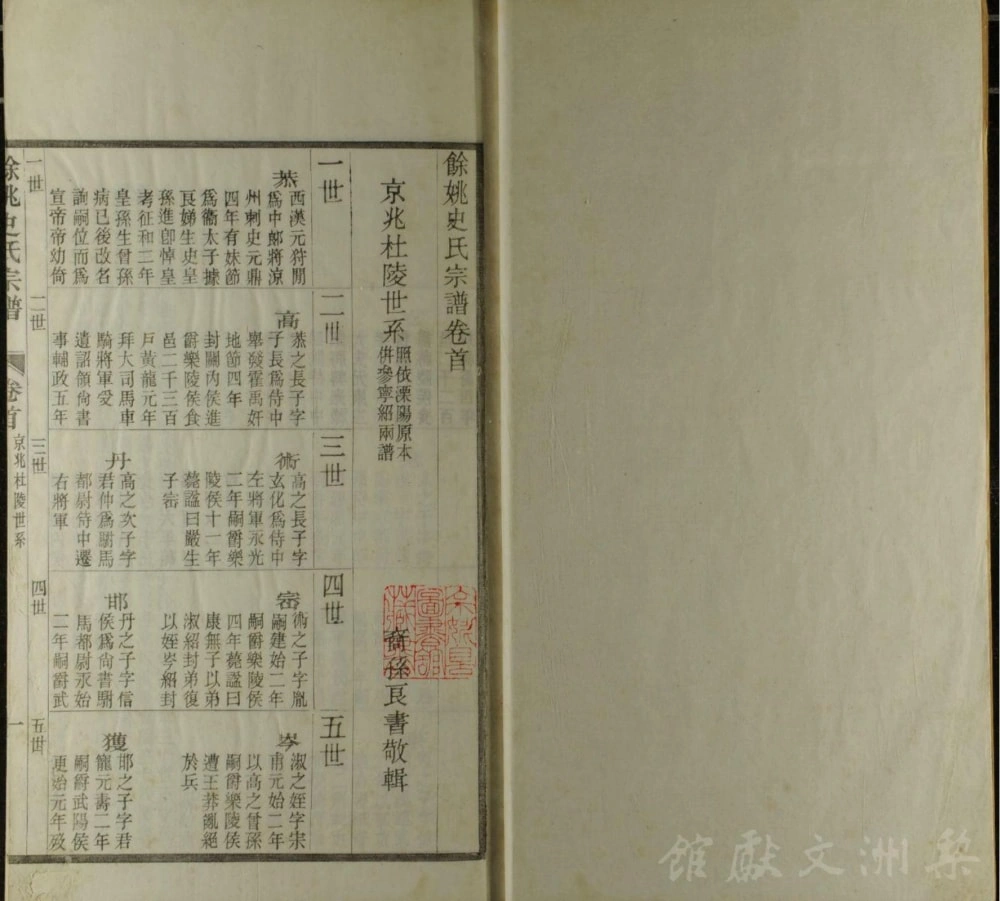 餘姚史氏宗譜卷首
京兆杜陵世系
照依溧陽原本
併參寧紹兩譜
裔孫良書敬輯
一世
恭
西漢元狩間
爲中郎將涼
州刺史元鼎
四年有妹節
爲衞太子據
良娣生史皇
孫進卽悼皇
考征和二年
皇孫生曾孫
病已後改名
詢嗣位而爲
宣帝帝幼倚
二世
高
恭之長子字
子長爲侍中
舉發霍禹奸
地節四年
封關內侯進
爵樂陵侯食
邑二千三百
戶黃龍元年
拜大司馬車
騎將軍受
遺詔領尙書
事輔政五年
三世
術
高之長子字
玄化爲侍中
左將軍永光
二年嗣爵樂
陵侯十一年
薨諡曰嚴生
子宻
丹
高之次子字
君仲爲駙馬
都尉侍中遷
右將軍
四世
宻
術之子字胤
嗣建始二年
嗣爵樂陵侯
四年薨諡曰
康無子以弟
淑紹封弟復
以姪岑紹封
邯
丹之子字信
侯爲尙書駙
馬都尉永始
二年嗣爵武
五世
岑
淑之姪字宋
甫元始二年
以高之曾孫
嗣爵樂陵侯
遭王莽亂絕
於兵
獲
邯之子字君
寵元壽二年
嗣爵武陽侯
更始元年歿
一世
二世
三世
四世
五世
餘姚史氏宗譜
卷首
京兆杜陵世系
一
梨洲文獻館